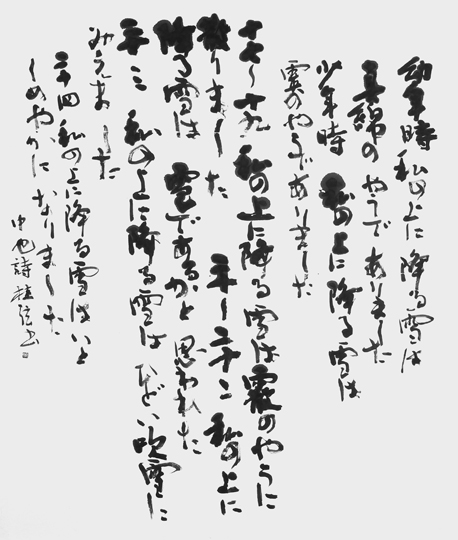 幼年時 私の上に降る雪は
真綿のやうでありました
少年時 私の上に降る雪は
霙のやうでありました
十七〜十九 私の上に降る雪は霰のやうに
散りました 二十〜二十二 私の上に
降る雪は 雹であるかと思われた
二十三 私の上に降る雪は ひどい吹雪に
みえました
二十四 私の上に降る雪はいと
しめやかになりました
中也詩 書